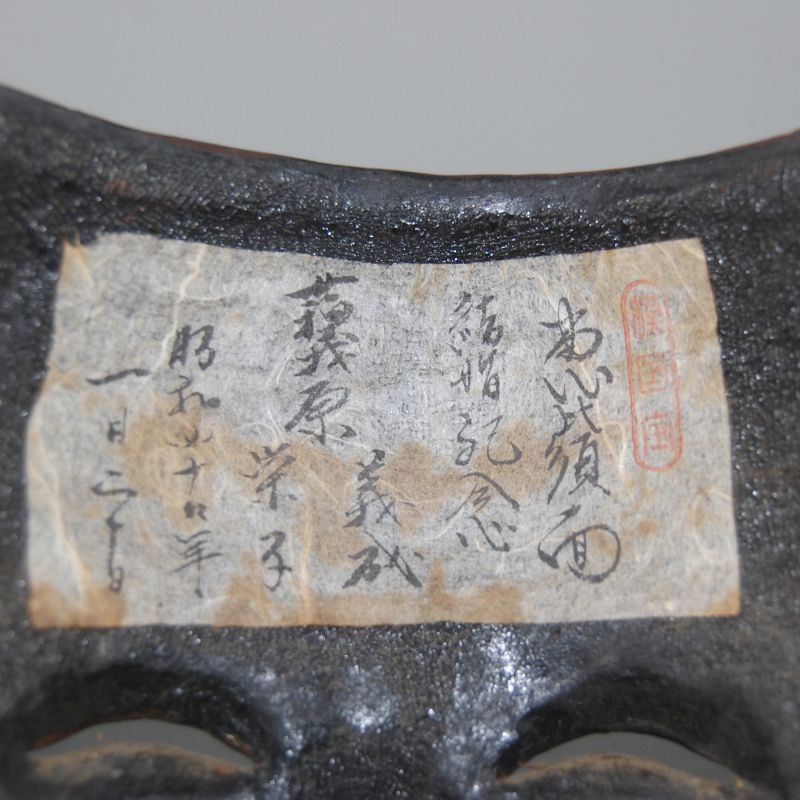 恵比須面
結婚記念
藤原 義成
栄子
昭和四十九年
一月二十日